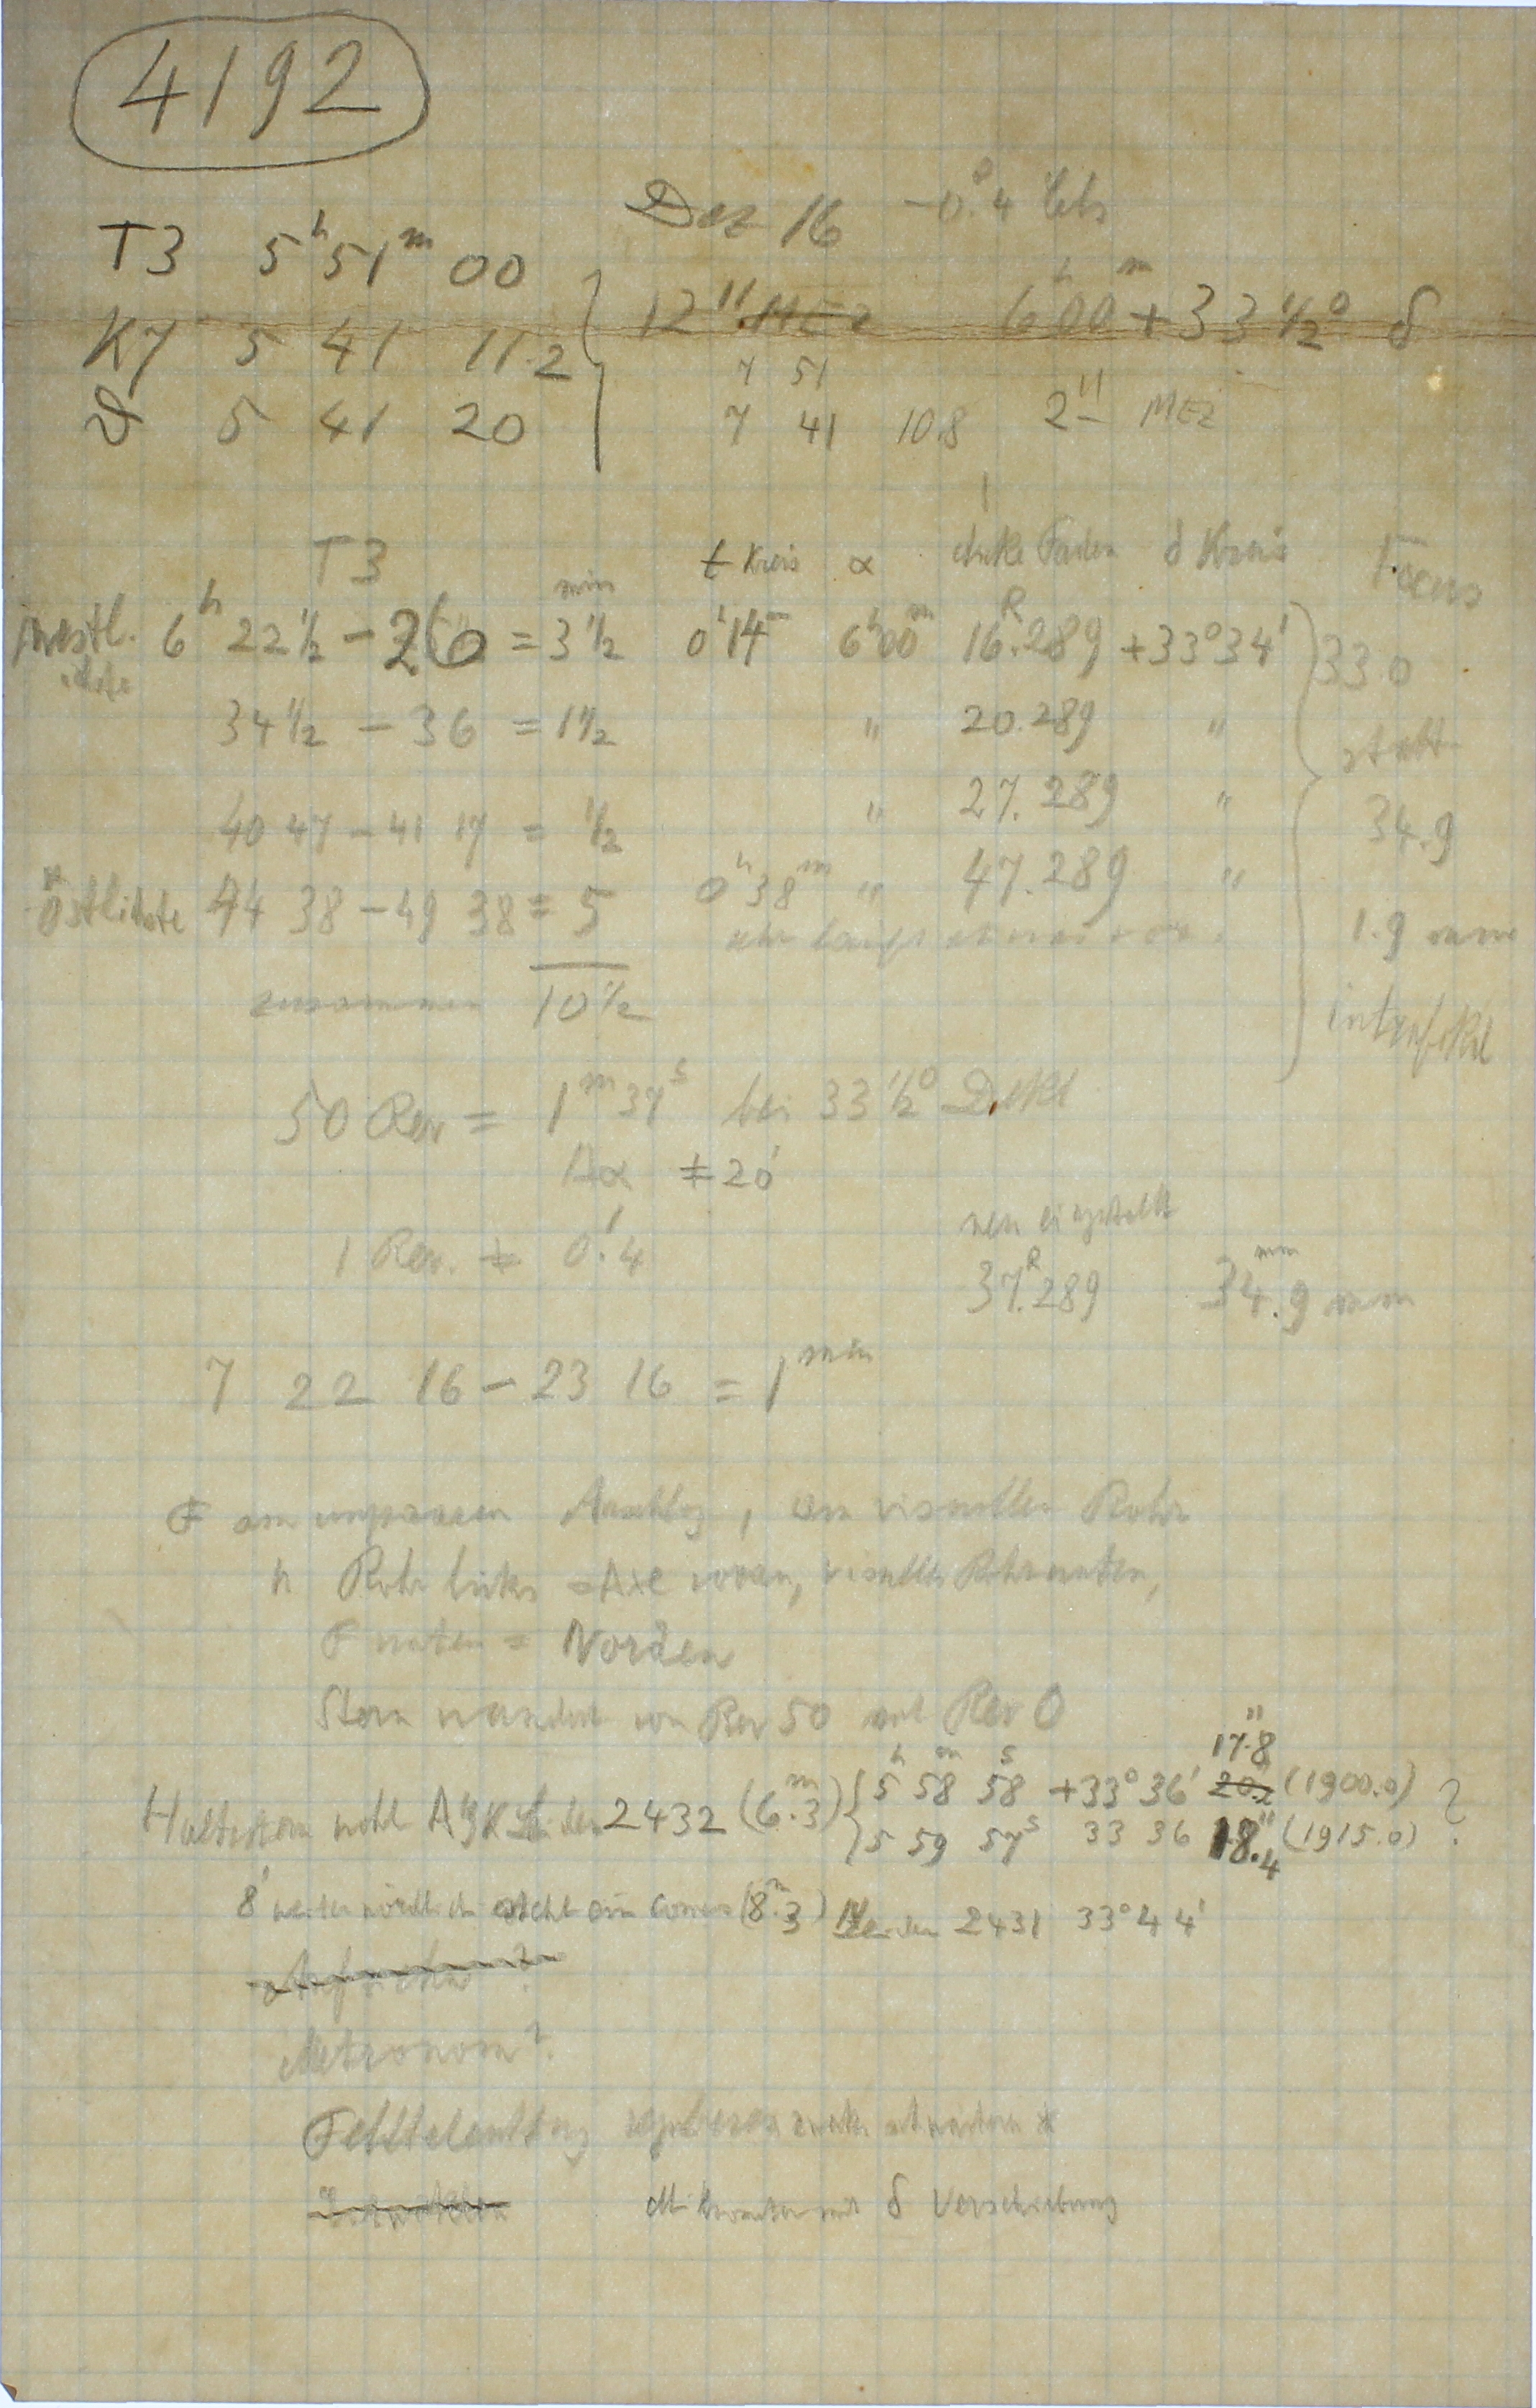 4192
Dez 16 -0°.4 Cels
T3 5h 51m 00
K7 5 41 11.2
D 5 41 20
12" MEZ 6h 00m + 33 1/2° δ
7 51
7 41 10.8 2" MEZ
T3 t Kreis α dicke Faden δ Kreis Focus
westl. 6h 22 1/2 - 26 = 3 1/2 min 0h 14m 6h 00m 16R.289 +33°34' 33.0
34 1/2 - 36 = 1 1/2 " 20.289 " statt
40 47 - 41 17 = 1/2 " 27.289 " 34.9
östlichste 44 38 - 49 38 = 5 0h 38m " 47.289 "
Uhr läuft etwas vor. 1.9 mm
zusammen 10 1/2 intrafokal
50 Rev = 1m 37s bei 33 1/2° Dekl
Δα ≠ 20'
1 Rev. ≠ 0'.4 neu eingestellt
37R.289 34.9 mm
7 22 16 - 23 16 = 1 min
F am Anschlag, am visuellen Rohr
h Rohr links = Axe visuelles Rohr unten,
F unten = Norden
Stern wandert von Rev 50 auf Rev 0
17.8
Haltestern wohl AGK Leiden 2432 (6m.3) { 5h 58m 58s +33° 36' 20." (1900.0) ?
5 59 57s 33 36 18."4 (1915.0)
8' weiter nördlich steht ein Comes (8m.3) Leiden 2431 33°44'
Metronom?
δ Verschiebung